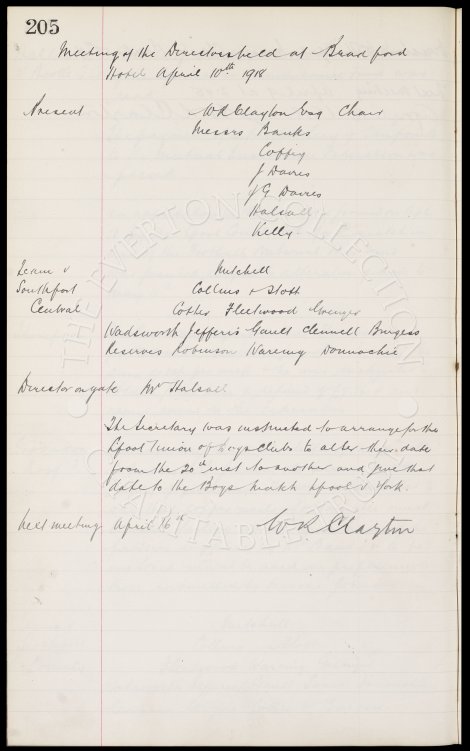 205
Meeting of the Directors held at Bradford
Hotel April 10th 1918
Present W R Clayton Esq Chair
Messrs Banks
Coffey
J Davies
J G Davies
Halsall
Kelly
Team v Mitchell
Southport Collins & Stott
Central Cotter Fleetwood Grenyer
Wadsworth Jefferis Gault Clennell Burgess
Reserves Robinson Wareing Donnachie
Director on gate Mr Halsall
The Secretary was instructed to arrange for the
Lpool Union of boys clubs to alter their date
from the 20th inst to another and give that
date to the Boys match Lpool v York.
next meeting April 16th W R Clayton
THE EVERTON COLLECTION
CHARITABLE TRUST